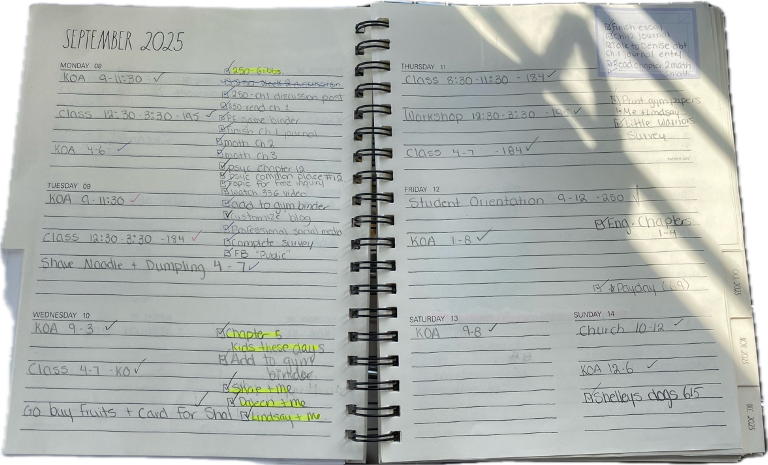 SEPTEMBER 2025
MONDAY 08
KOA 9-11:30 ✓
Class 12:30-3:30-195 ✓
KOA 4-6 ✓
250-
250-ch1 discussion post
250 read ch 1
binder
Finish ch 1 journal
math ch 2
math ch 3
psyc chapter 12
psyc common place #12
topic for free inquiry
watch 336 video
add to gym binder
customize blog
Professional social media
Complete survey
FB "Public"
TUESDAY 09
KOA 9-11:30 ✓
Class 12:30-3:30-184 ✓
Shave Noodle + Dumpling 4-7 ✓
WEDNESDAY 10
KOA 9-3 ✓
Class 4-7 -KO ✓
Go buy Fruits + Card For Shol
Chapter 5
Kids these days
Add to gym
binder
+ me
+ me
Lindsay + me
THURSDAY 11
Class 8:30-11:30-184 ✓
Workshop 12:30-3:30-195 ✓
Class 4-7 -184 ✓
Finish essay
Ch 12 journal
Talk to Denise abt
journal entry
Read chapter 2 math
Print gym papers
Me + Lindsay
Little Warriors
Survey
FRIDAY 12
Student Orientation 9-12-250 ✓
KOA 1-8 ✓
Eng. Chapters
1-4
Payday
SATURDAY 13
KOA 9-8 ✓
SUNDAY 14
Church 10-12 ✓
KOA 12-6 ✓
Shelleys dogs 615
OCT 2025
NOV 2025
DEC 2025